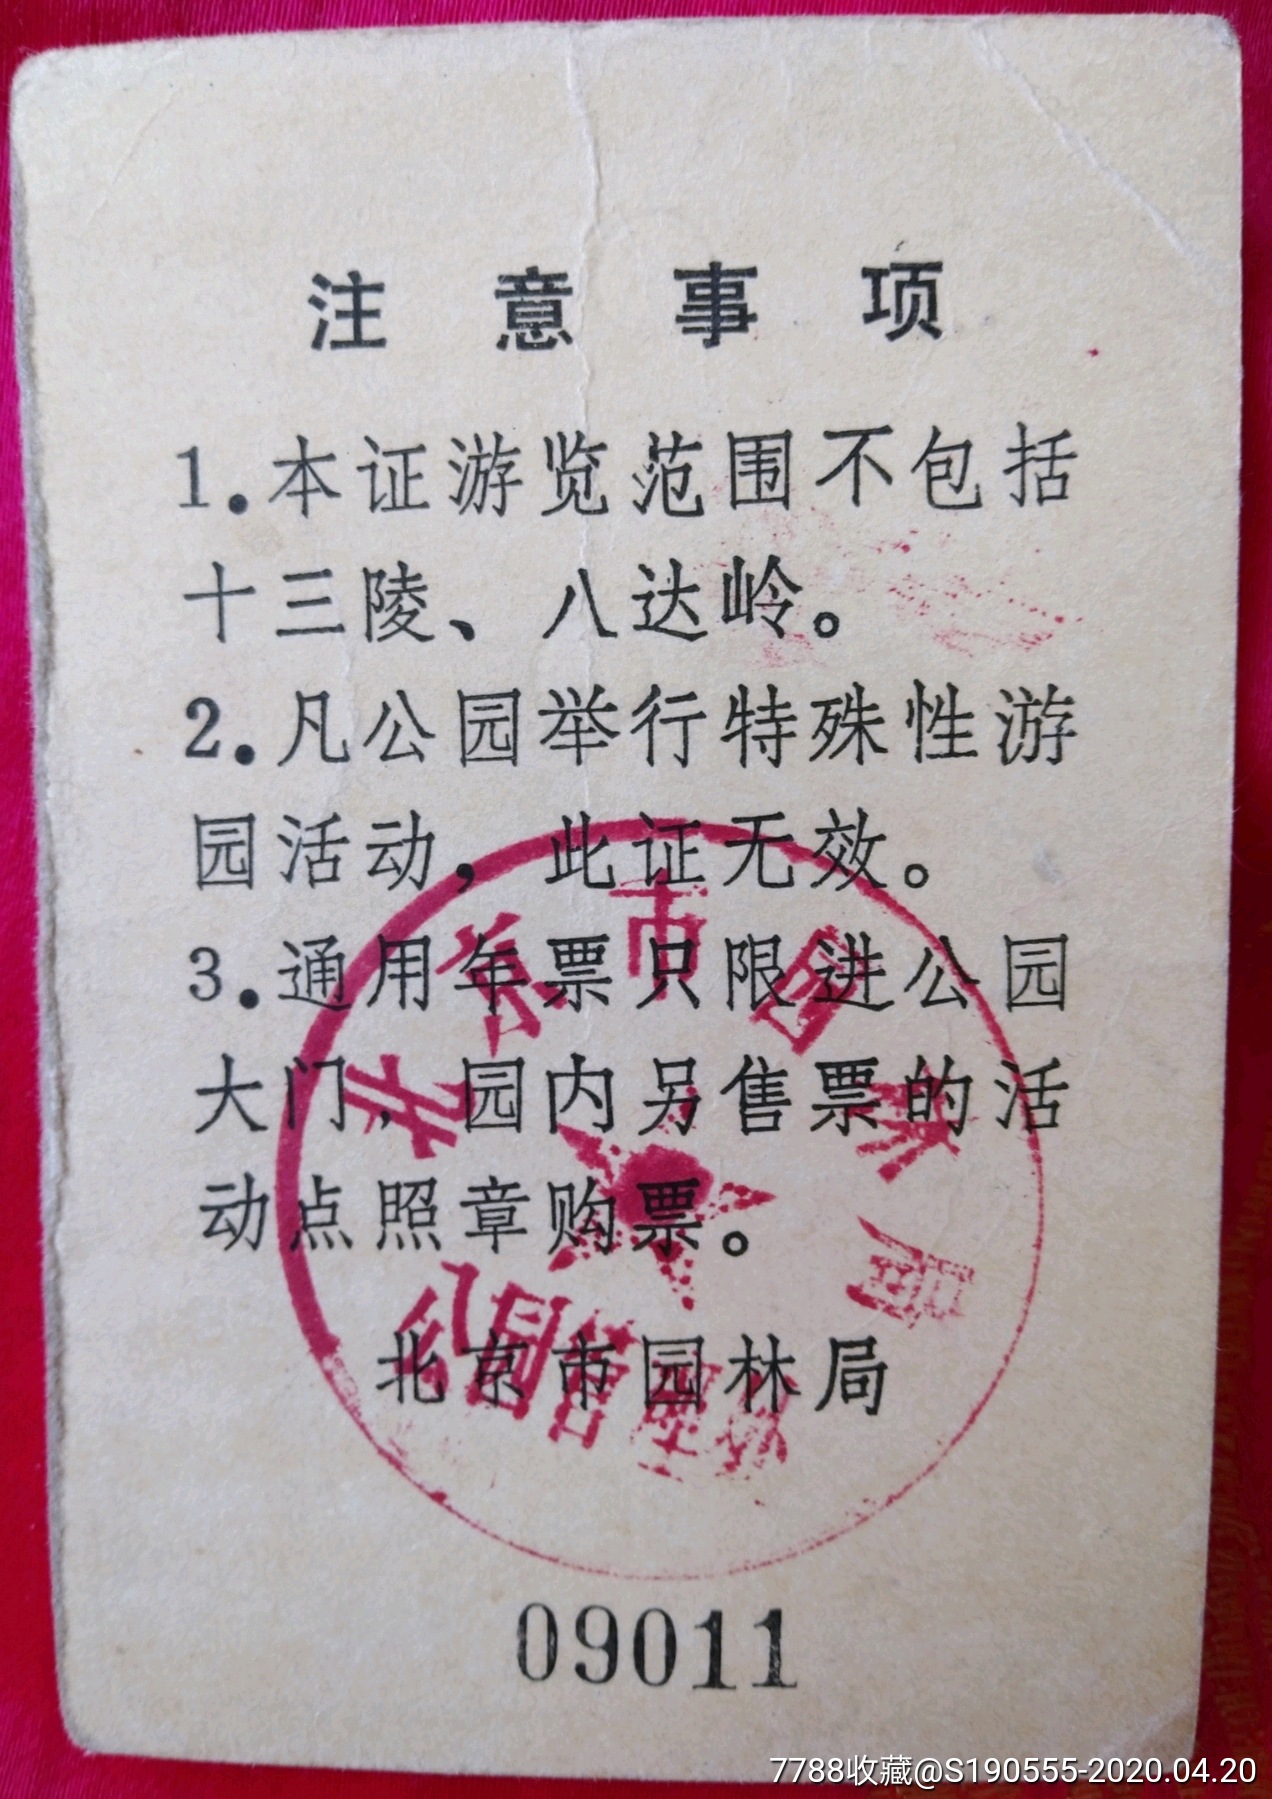 注意事项
1.本证游览范围不包括
十三陵、八达岭。
2.凡公园举行特殊性游
园活动，此证无效。
3.通用年票只限进公园
大门，园内另售票的活
动点照章购票。
北京市园林局
北京市园林局
09011
7788收藏@S190555-2020.04.20